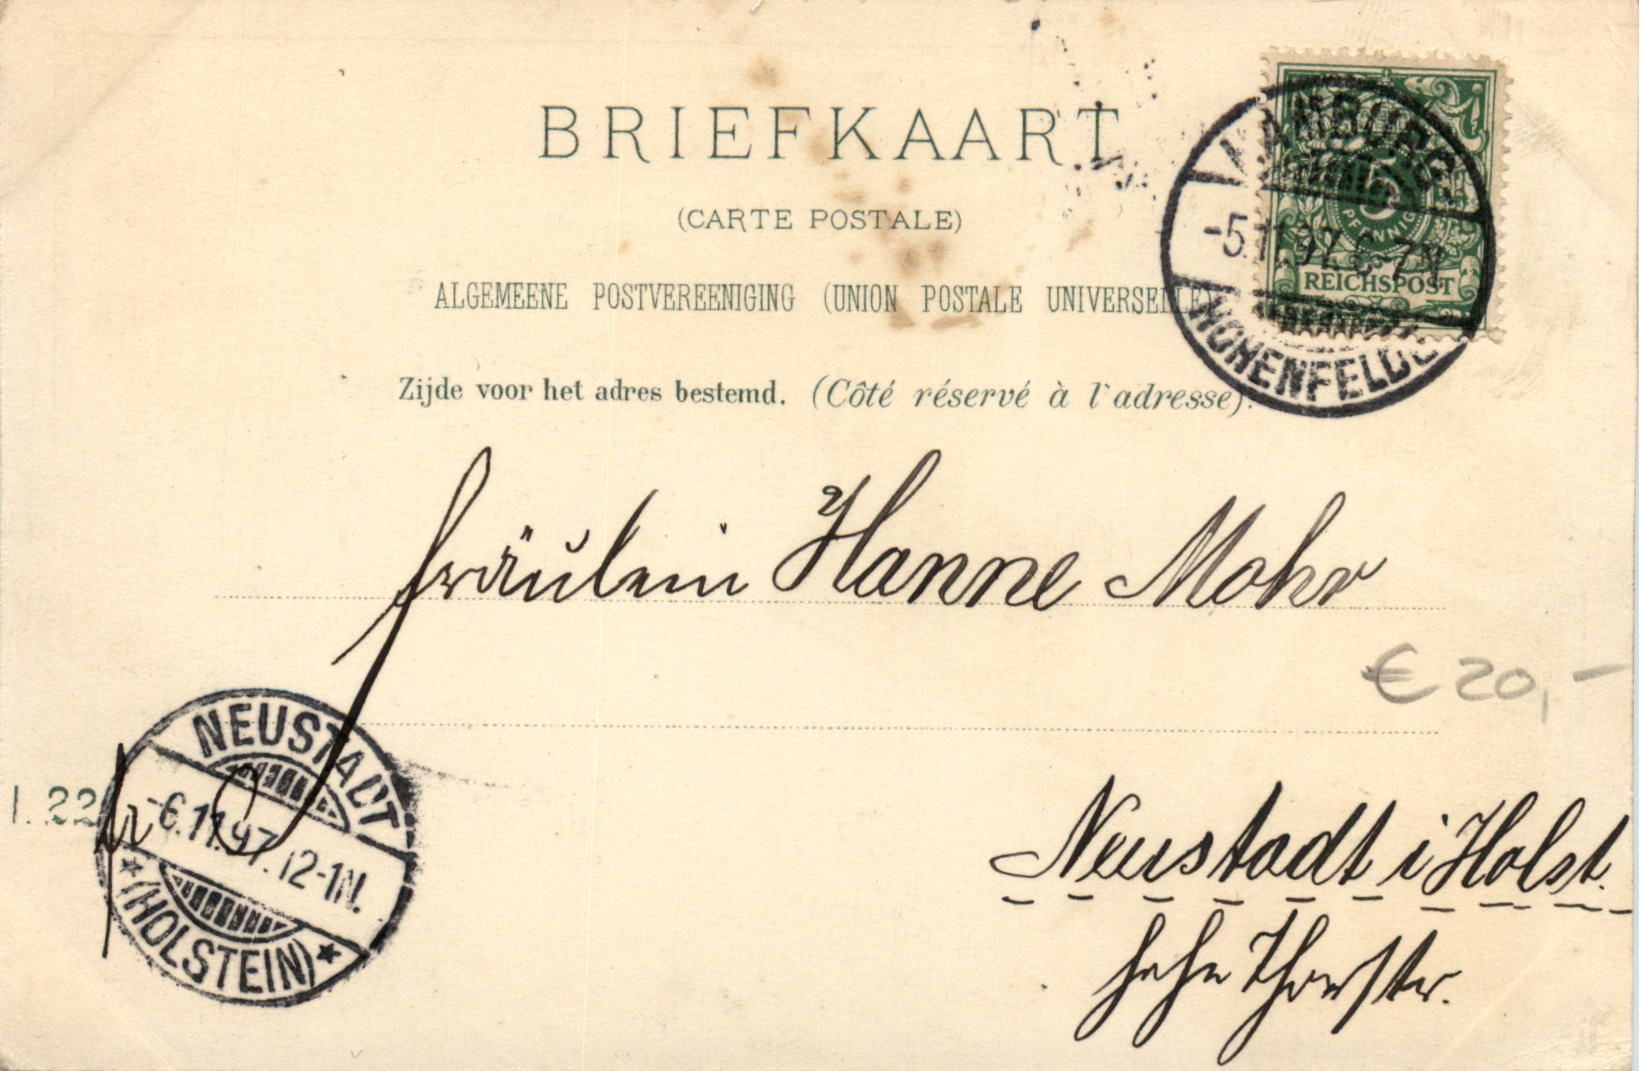 BRIEFKAART
(CARTE POSTALE)
ALGEMEENE POSTVEREENIGING (UNION POSTALE UNIVERSELLE)
Zijde voor het adres bestemd. (Côté réservé à l'adresse).
HAMBURG
-5.11.97. 6-7N
HOHENFELDE
5
PFENNIG
REICHSPOST
Fräulein Hanne Mohr
€ 20,-
NEUSTADT
-6.11.97. 12-1N.
(HOLSTEIN)
1. 22
Neustadt i Holst.